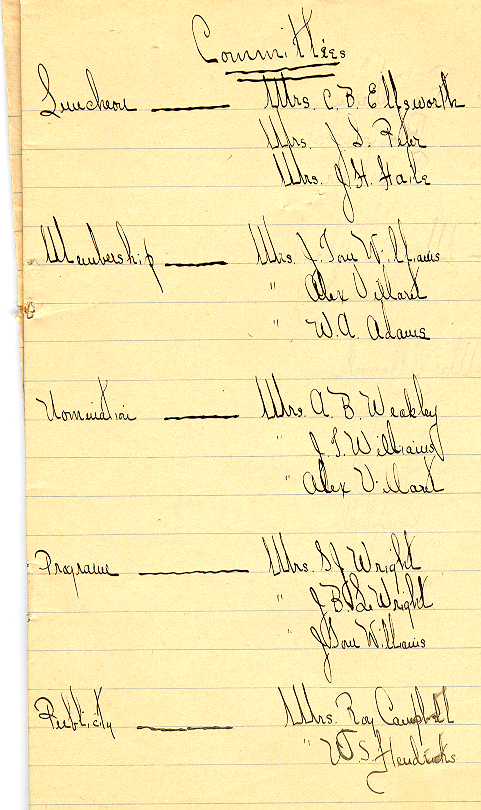 Committies
Luncheon —— Mrs. C. B. Ellsworth
Mrs. J. L.
Mrs. J. H. Haile
Membership —— Mrs. J. Tom Williams
" Alex Villaret
" W. A. Adams
Nomination —— Mrs. A. B. Weakley
" J. T. Williams
" Alex Villaret
Programe —— Mrs. S. J. Wright
" J. B. Wright
" J. Tom Williams
Publicity —— Mrs. Roy Campbell
" W. S. Hendricks